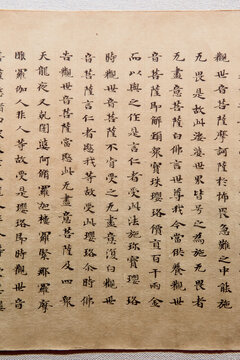 觀世音菩薩摩訶薩於怖畏急難之中能施
无畏是故此娑婆世界皆号之為施无畏者
无盡意菩薩白佛言世尊我今當供養觀世
音菩薩即解頸眾寶珠瓔珞價直百千兩金
而以與之作是言仁者受此法施珍寶瓔珞
時觀世音菩薩不肯受之无盡意復白觀世
音菩薩言仁者愍我等故受此瓔珞尒時佛
告觀世音菩薩當愍此无盡意菩薩及四眾
天龍夜叉乾闥婆阿脩羅迦樓羅緊那羅摩
睺羅伽人非人等故受是瓔珞即時觀世音